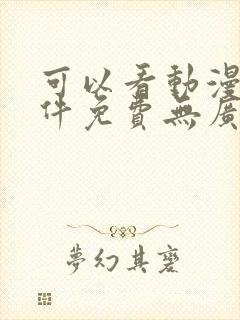 可以看動漫
件免費無廣
夢幻其塞